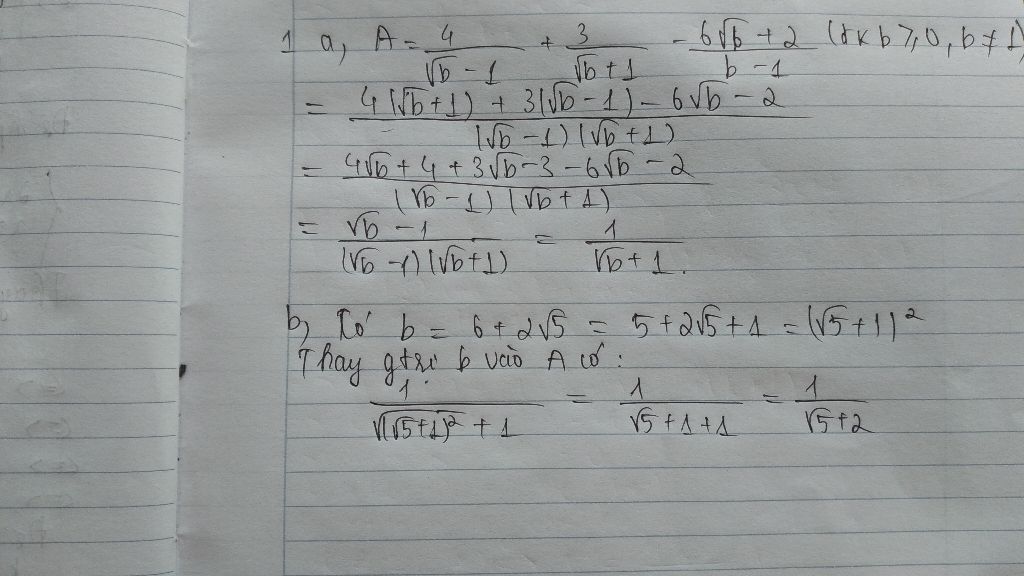 1 a, A = 4/(√b - 1) + 3/(√b + 1) - (6√b + 2)/(b - 1) (đk b ≥ 0, b ≠ 1)
= (4(√b + 1) + 3(√b - 1) - 6√b - 2)/((√b - 1)(√b + 1))
= (4√b + 4 + 3√b - 3 - 6√b - 2)/((√b - 1)(√b + 1))
= (√b - 1)/((√b - 1)(√b + 1)) = 1/(√b + 1).
b, Có b = 6 + 2√5 = 5 + 2√5 + 1 = (√5 + 1)²
Thay gtri b vào A có:
1/(√(√5 + 1)² + 1) = 1/(√5 + 1 + 1) = 1/(√5 + 2)